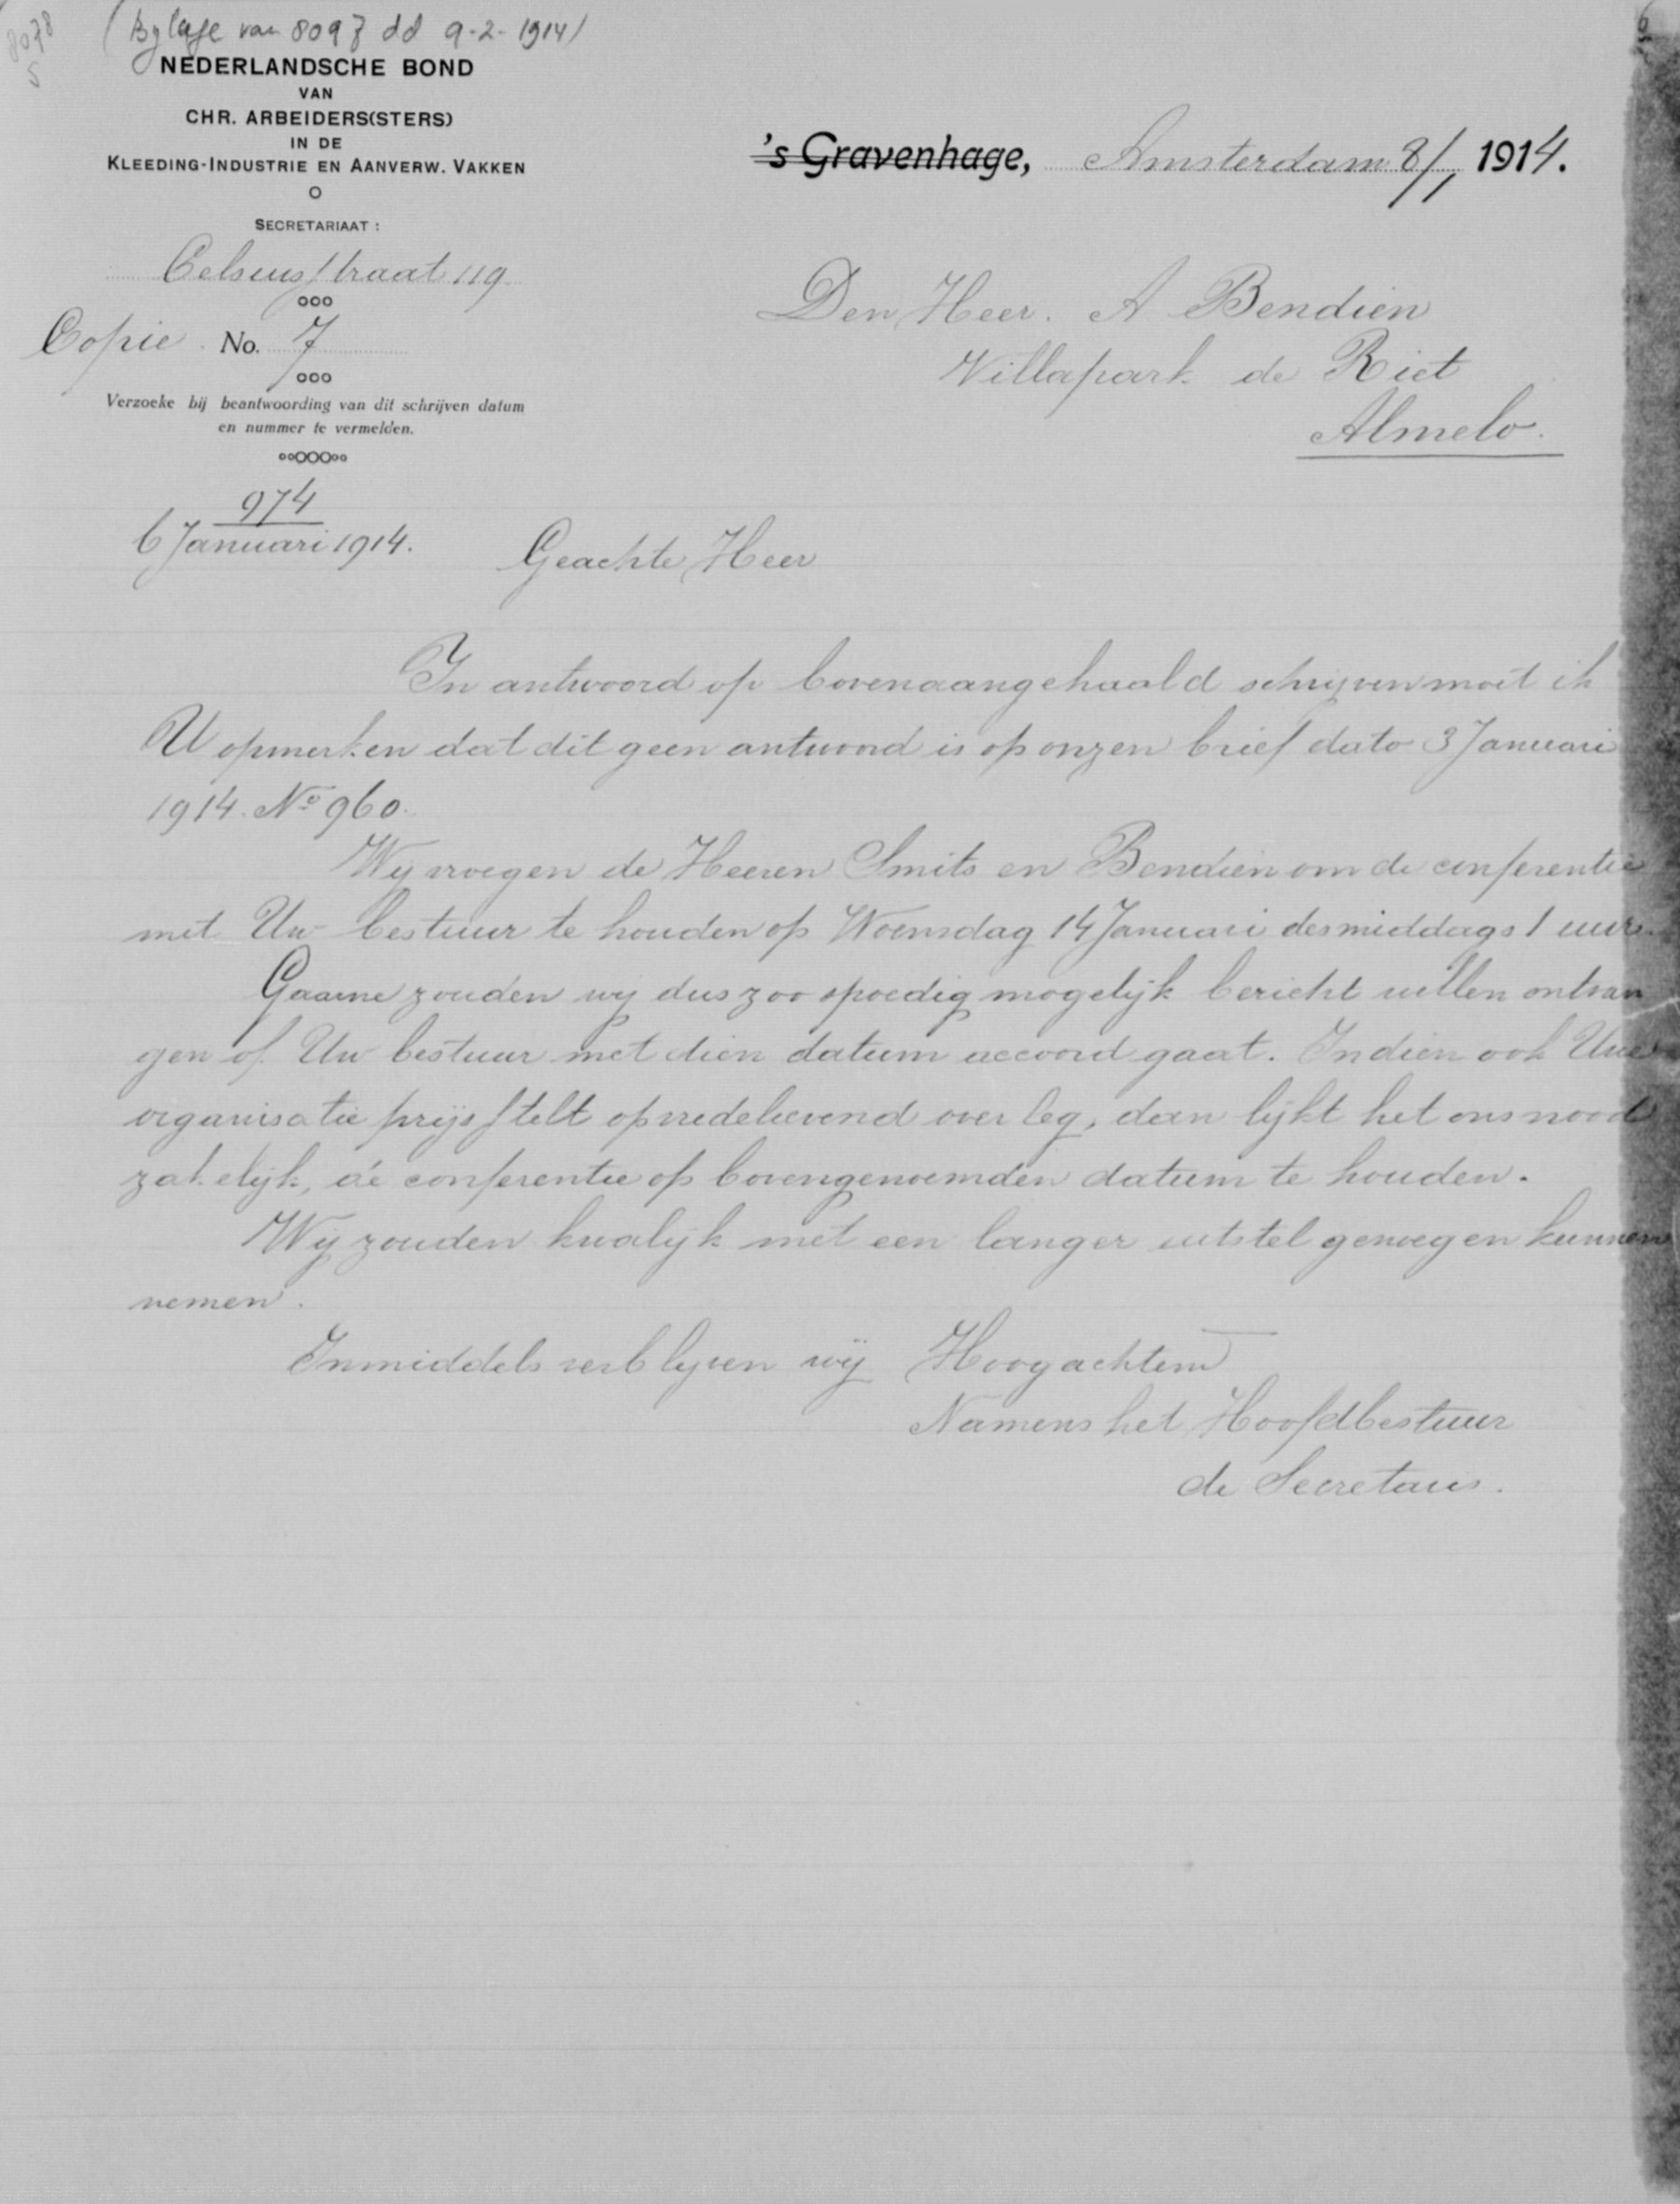 8078
5
(Bylage van 8097 dd 9-2-1914)
NEDERLANDSCHE BOND
VAN
CHR. ARBEIDERS(STERS)
IN DE
KLEEDING-INDUSTRIE EN AANVERW. VAKKEN
SECRETARIAAT:
Celsiusstraat 119
Copie No. 7
Verzoeke bij beantwoording van dit schrijven datum
en nummer te vermelden.
974
6 Januari 1914.
's Gravenhage, Amsterdam 8/1 1914.
Den Heer. A Bendien
Villapark de Riet
Almelo.
Geachte Heer
In antwoord op bovenaangehaald schrijven moet ik
U opmerken dat dit geen antwoord is op onzen brief dato 3 Januari
1914. No 960.
Wij vroegen de Heeren Smits en Bendien om de conferentie
met Uw bestuur te houden op Woensdag 14 Januari des middags 1 uur.
Gaarne zouden wij dus zoo spoedig mogelijk bericht willen ontvan
gen of Uw bestuur met dien datum accoord gaat. Indien ook Uwe
organisatie prijsstelt op vredelievend overleg, dan lijkt het ons nood
zakelijk, de conferentie op bovengenoemden datum te houden.
Wij zouden kwalijk met een langer uitstel genoegen kunnen
nemen.
Inmiddels verblijven wij Hoogachtend
Namens het Hoofdbestuur
de Secretaris.